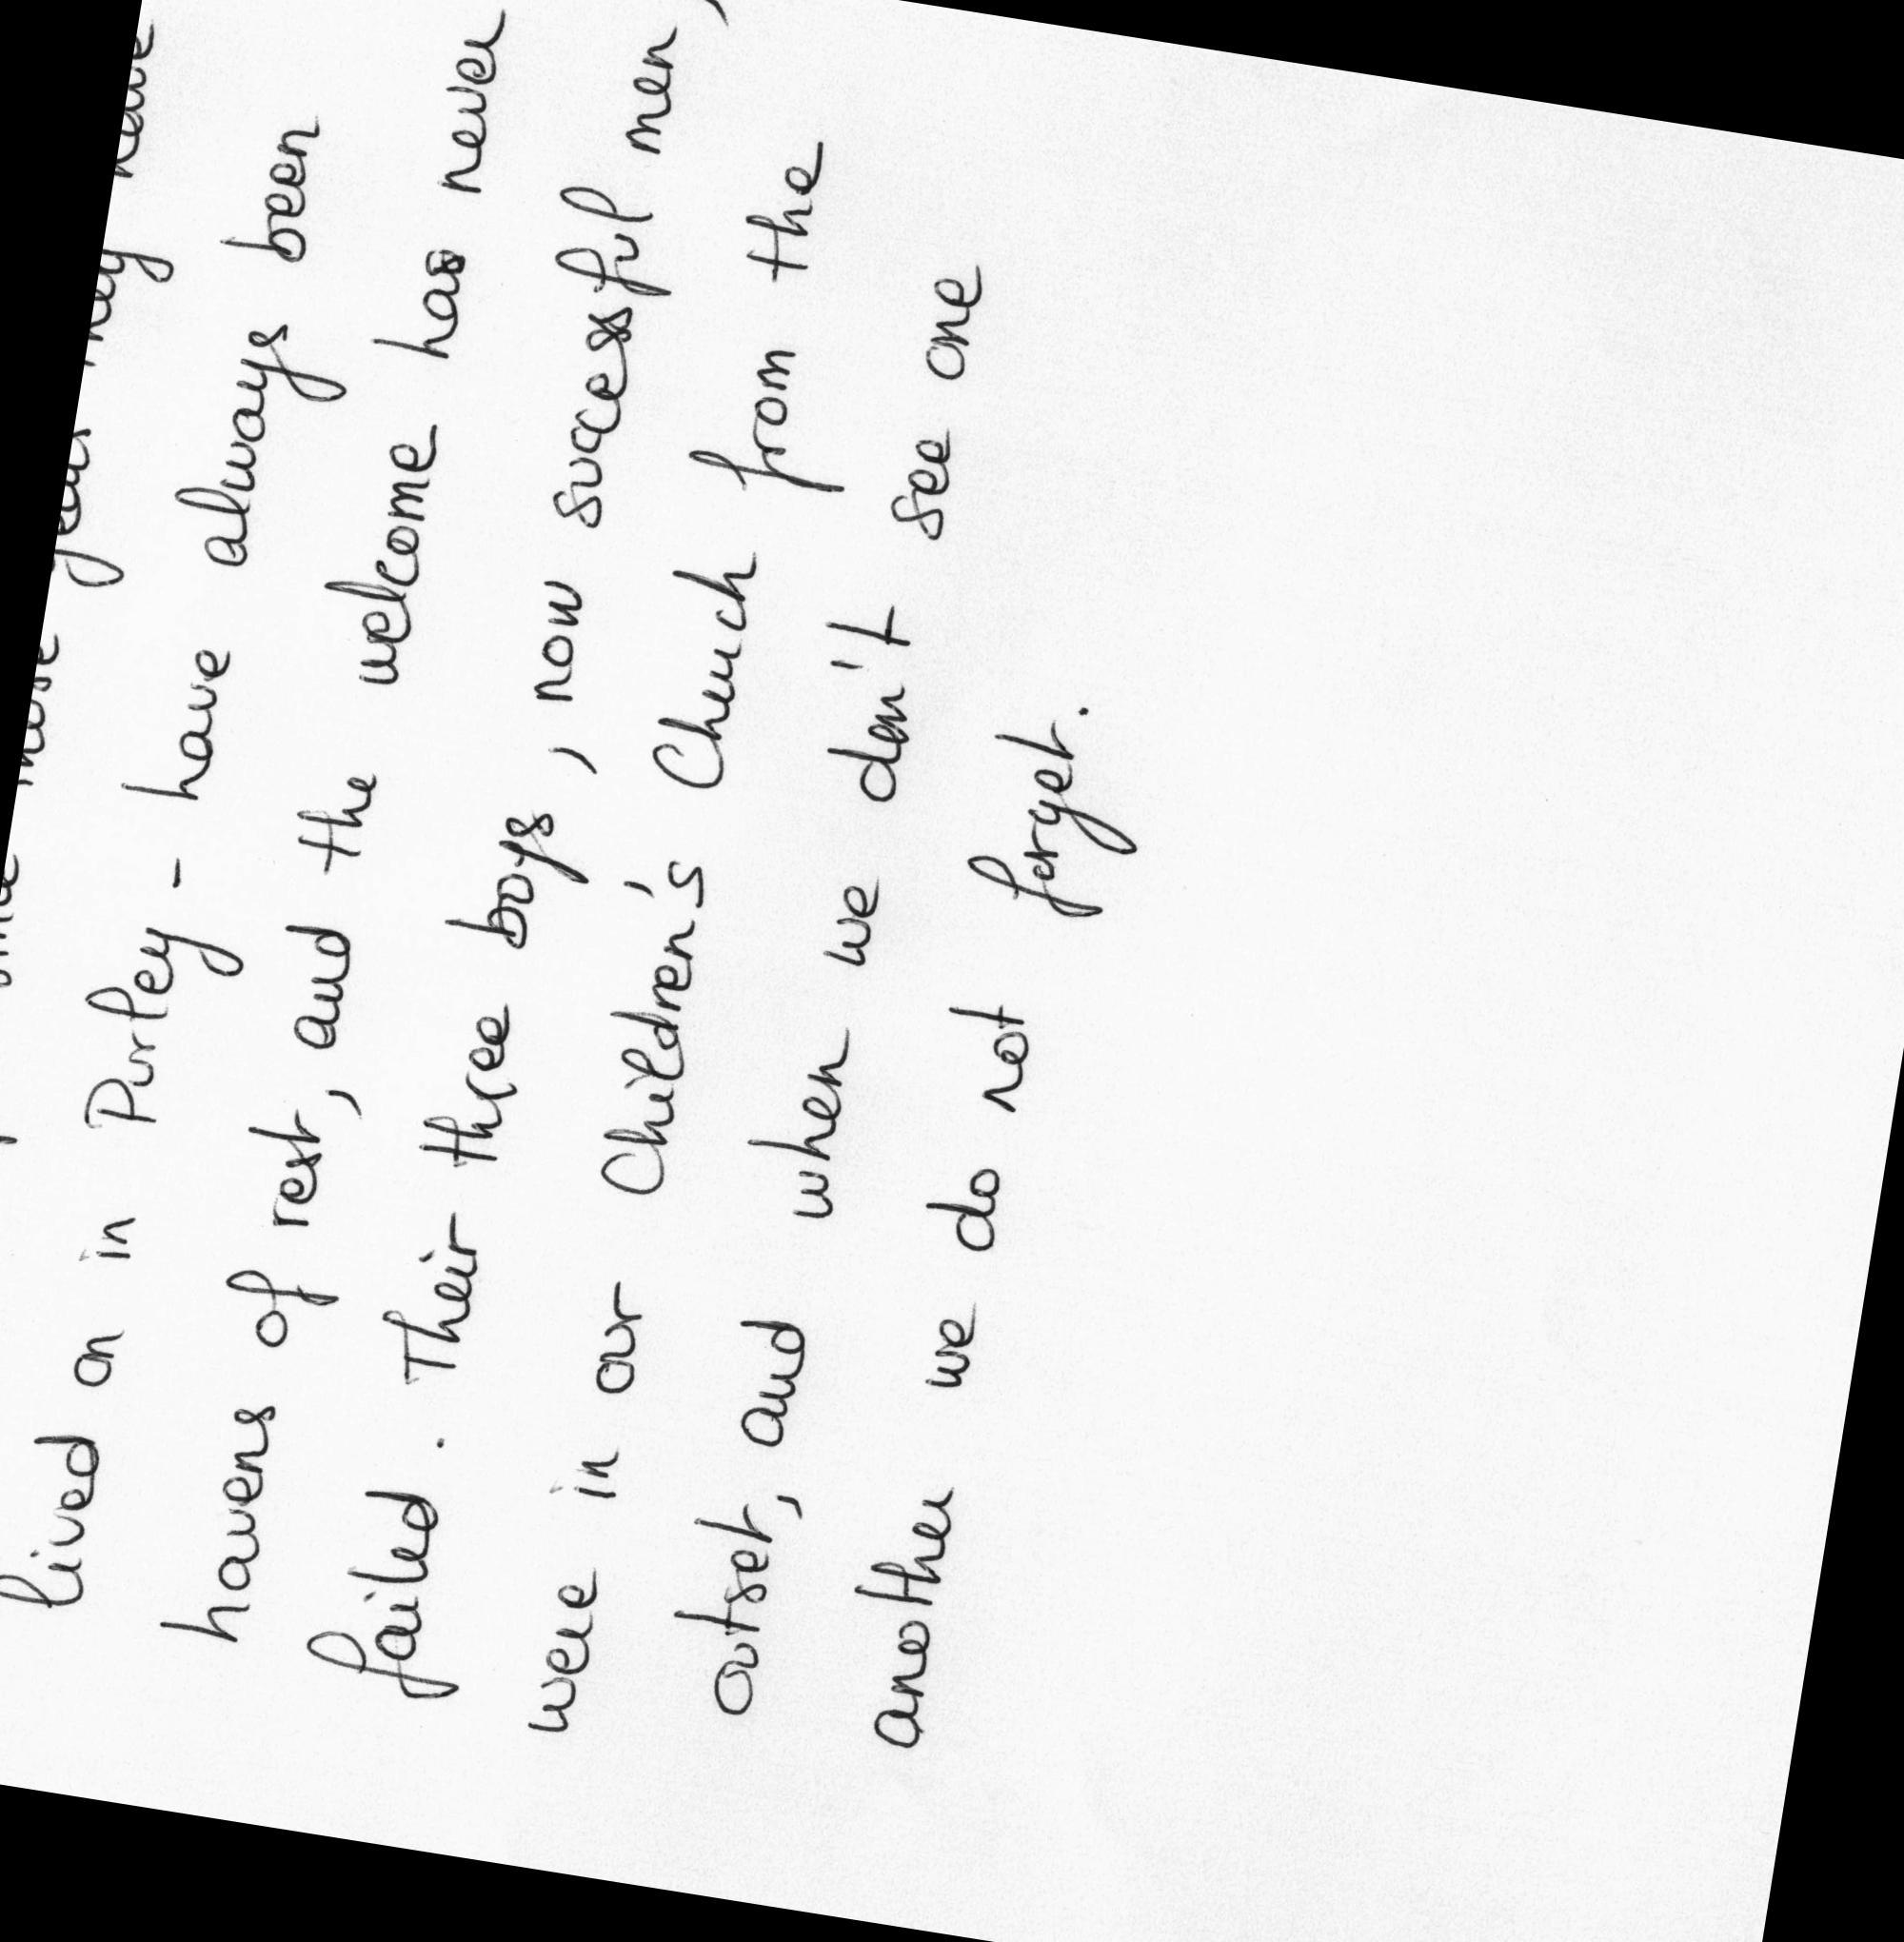 they have
lived on in Purley - have always been
havens of rest, and the welcome has never
failed. Their three boys, now successful men,
were in our Children's Church from the
outset, and when we don't see one
another we do not forget.